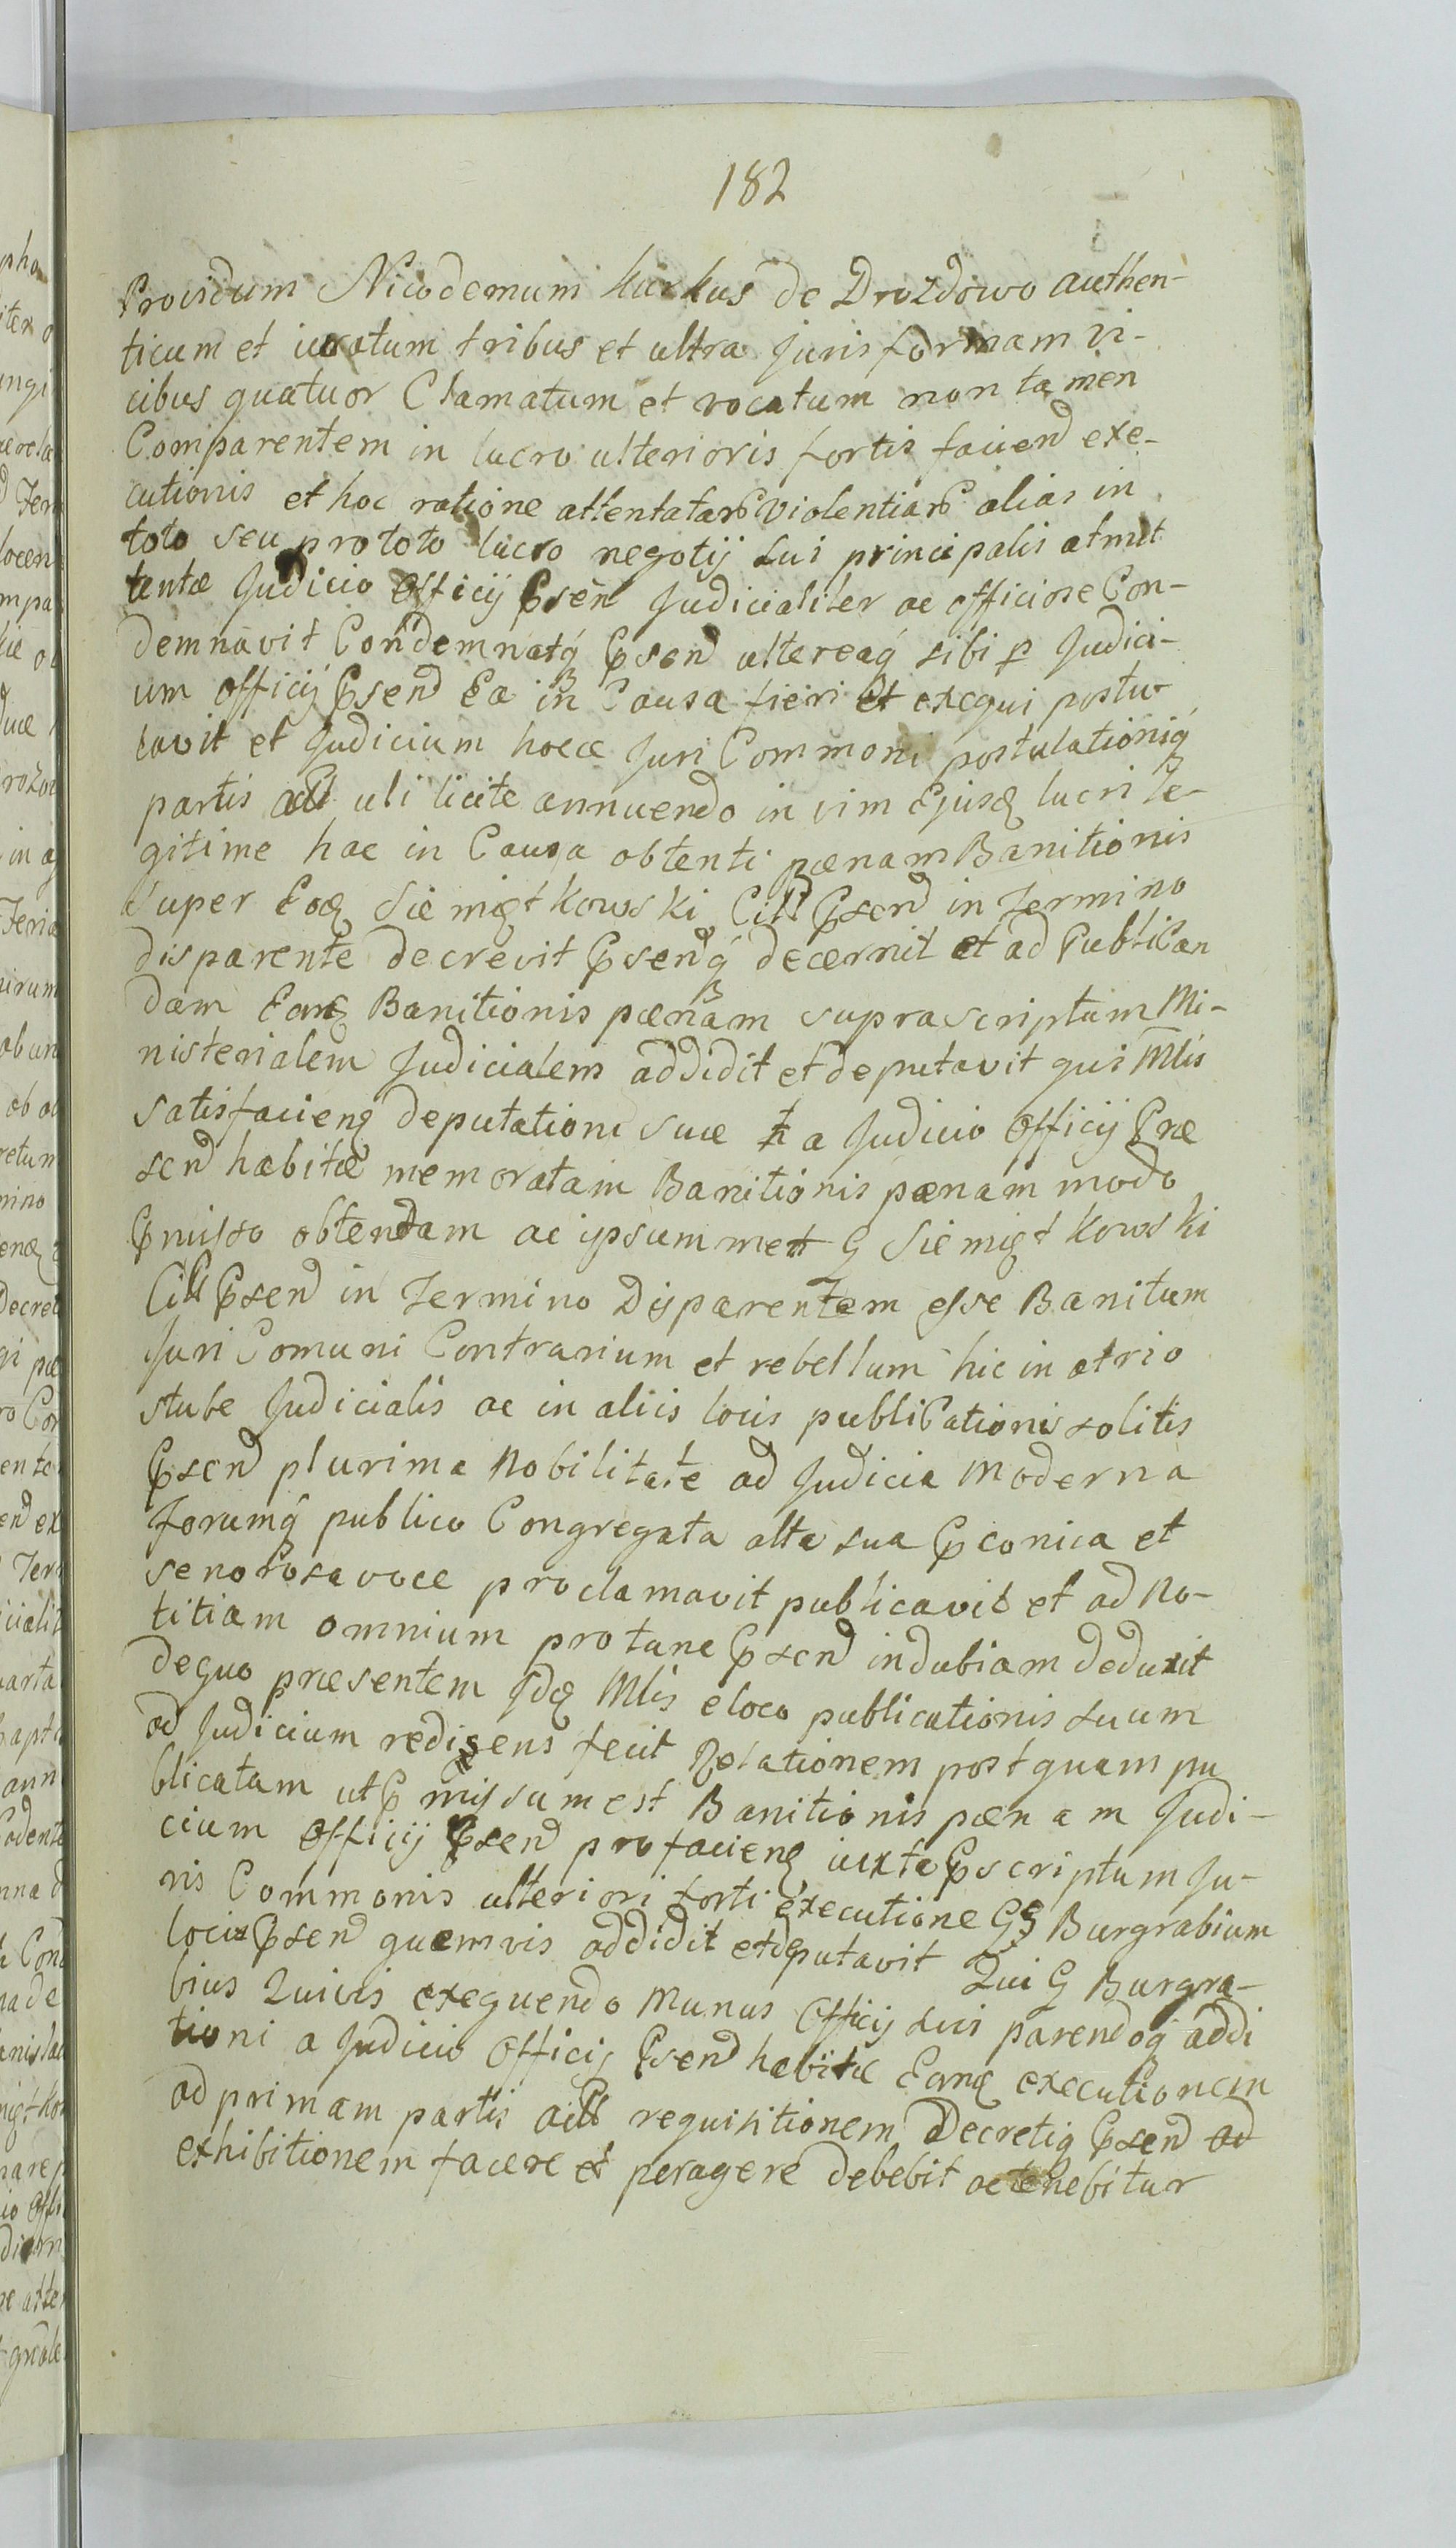 182
Providum Nicodemum Kurkus de Drozdowo authen-
ticum et iuratum tribus et ultra Juris formam vi-
cibus quatuor Clamatum et vocatum non tamen
Comparentem in lucro ulterioris fortis faciend exe-
cutionis et hoc ratione attentatar violentiar alias in
toto seu pro toto lucro negotij sui principalis atmit
tentæ Judicio Officij Psen Judicialiter ac officiose Con-
demnavit Condemnatq Psend ultereaq sibi p Judici-
um officij Psend Ea in Causa fieri et exequi postu-
lavit et Judicium hocce Juri Commoni postulationiq
partis act uti licite annuendo in vim Ejusq lucri le-
gitime hac in Causa obtenti pænam Banitionis
super Eoq Siemiętkowski Citt Psend in Termino
disparente decrevit Psenq decernit et ad Publican
dam Eanq Banitionis pænam suprascriptum Mi-
nisterialem Judicialem addidit et deputavit qui Mlis
satisfacienq deputationi suæ a Judicio Officij Præ
send habitæ memoratam Banitionis pænam modo
Pmisso obtentam ac ipsummet G Siemiętkowski
Citt Psend in Termino Disparentem esse Banitum
Juri Comuni Contrarium et rebellum hic in atrio
stubæ Judicialis ac in aliis locis publicationis solitis
Psend plurima Nobilitate ad Judicia Moderna
Forumq publico Congregata alta sua Pconica et
senorosa voce proclamavit publicavit et ad No-
titiam omnium pro tunc Psend indubiam deduxit
de quo præsentem Jdq Mlis e loco publicationis suum
ad Judicium rediens fecit Relationem post quam pu
blicatam ut Pmissum est Banitionis pænam Judi-
cium Officij Psend pro facienq iuxta Pscriptum Ju-
ris Commonis ulteriori forti executione GG Burgrabium
loci Psend quemvis addidit et deputavit Qui G Burgra-
bius Quivis exequendo Munus Officij sui parendoq addi
tioni a Judicio Officij Psend habitæ Eanq executionem
ad primam partis act requisitionem Decretiq Psend
exhibitionem facere et peragere debebit ac tenebitur